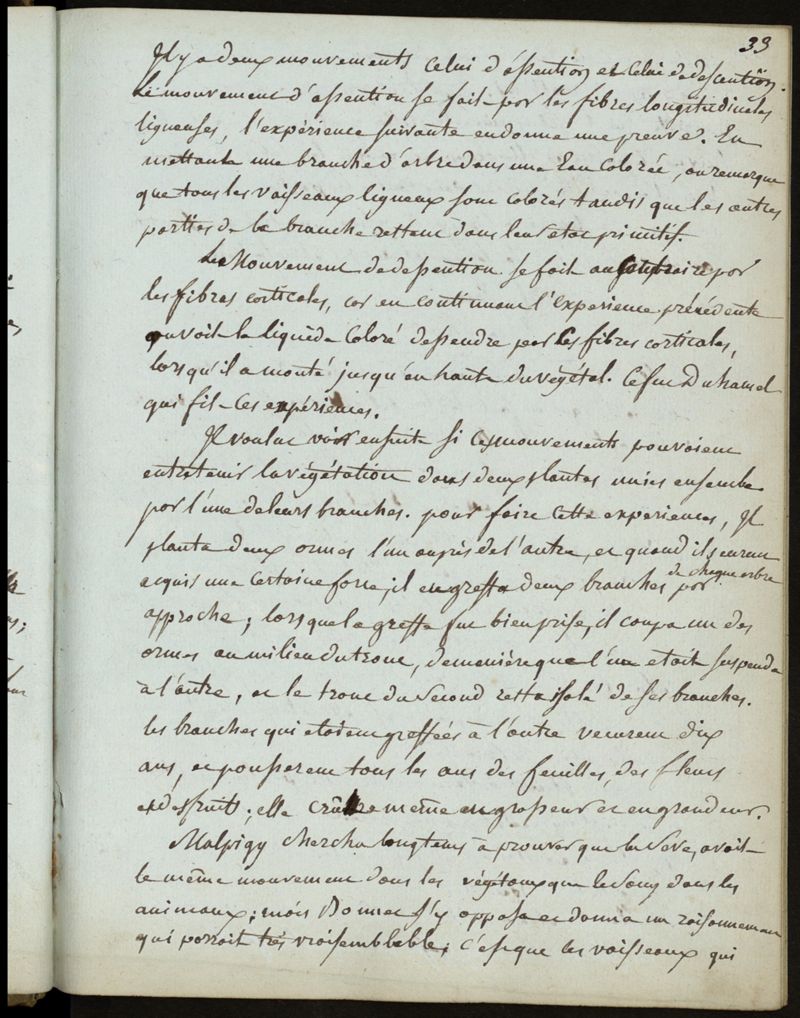 33
Il y a deux mouvements celui d'assention et celui de dessention.
Le mouvement d'assention se fait par les fibres longitudinales
ligneuses, l'expérience suivante en donne une preuve. En
mettant une branche d'arbre dans une Eau Colorée, on remarque
que tous les vaisseaux ligneux sont colorés tandis que les autres
parties de la branche restent dans leur etat primitif.
Le Mouvement de dessention se fait au contraire par
les fibres corticales, car en continuant l'Experience précédente
on voit le liquide Coloré dessendre par les fibres corticales,
lorsqu'il a monté jusqu'en haut du végétal. Ce fut Duhamel
qui fit ces expériences.
Il voulut voir ensuite si ces mouvements pouvoient
entretenir la végétation dans deux plantes unies ensemble
par l'une de leurs branches. pour faire cette experiences, Il
planta deux ormes l'un auprès de l'autre, et quand ils eurent
acquis une certaine force, il en greffa deux branches de chaque arbre par
approche; lorsque la greffe fut bien prise, il coupa un des
ormes au milieu du tronc, de manière que l'un etoit suspendu
à l'autre, et le tronc du second resta isolé de ses branches.
les branches qui etoient greffées à l'autre vecurent dix
ans, et pousserent tous les ans des feuilles, des fleurs
et des fruits; elle crût même en grosseur et en grandeur.
Malpigy chercha longtems à prouver que la Seve, avoit
le même mouvement dans les végétaux que le Sang dans les
animaux; mais Bonnet s'y opposa et donna un raisonnement
qui paroit très vraisemblable; c'est que les vaisseaux qui